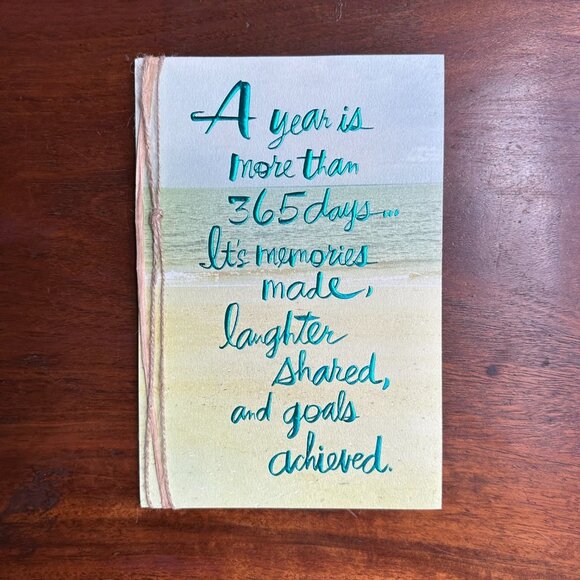 A year is
more than
365 days...
It's memories
made,
laughter
shared,
and goals
achieved.